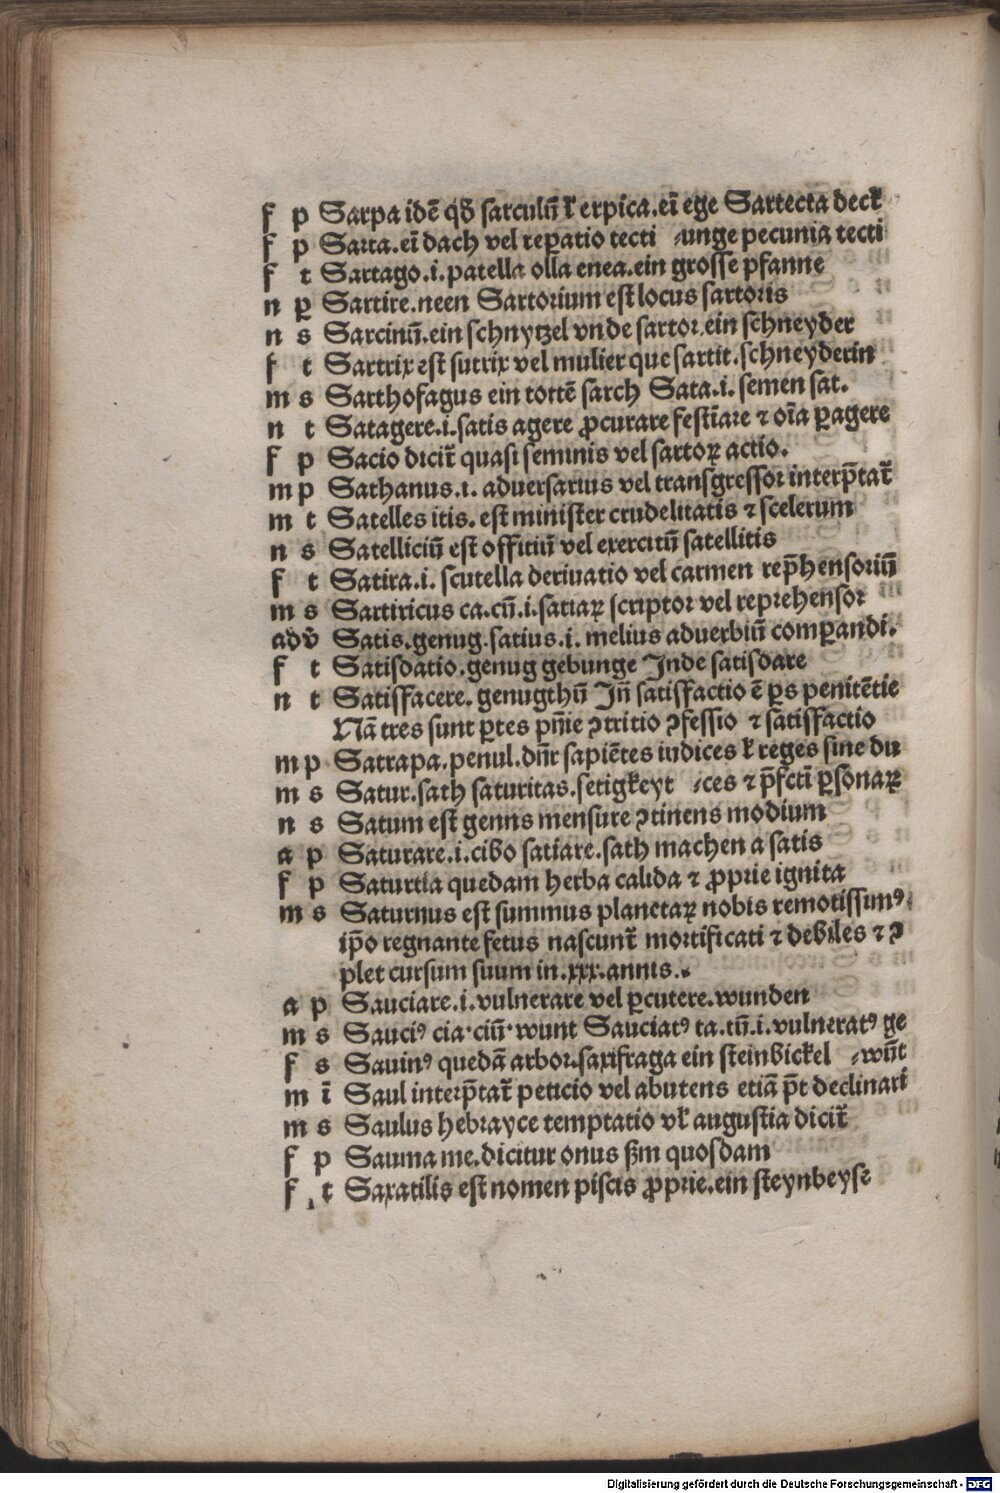 f p Sarpa idē qḋ sarculū ł erpica.eī ege Sartecta deck̄
f p Sarta.eī dach vel reꝑatio tecti ⸗unge pecunia tecti
f t Sartago.i.patella olla enea.ein grosse pfanne
n ꝑ Sartire.neen Sartorium est locus sartoris
n s Sarcinū.ein schnytzel vnde sartor.ein schneyder
f t Sartrix est sutrix vel mulier que sartit.schneyderin
m s Sarthofagus ein tottē sarch Sata.i.semen sat.
n t Satagere.i.satis agere ꝓcurare festīare ⁊ oīa ꝑagere
f p Sacio dicit̄ quasi seminis vel sartoꝝ actio.
m p Sathanus.i. aduersarius vel transgressor interp̄tat̄
m t Satelles itis. est minister crudelitatis ⁊ scelerum
n s Satelliciū est offitiū vel exercitū satellitis
f t Satira.i. scutella deriuatio vel carmen rep̄hensoriū
m s Sartiricus ca.cū.i.satiaꝝ scriptor vel reprehensor
adv̄ Satis.genug.satius.i. melius aduerbiū comꝑandi.
f t Satisdatio.genug gebunge Inde satisdare
n t Satisfacere.genugthū In̄ satisfactio ē ꝑs penitētie
Nā tres sunt ꝑtes pn̄ie ꝯtritio ꝯfessio ⁊ satisfactio
m p Satrapa.penul.dn̄r sapiētes iudices ł reges sine du
m s Satur.sath saturitas.setigkeyt ⸗ces ⁊ p̄fcti ꝑsonaꝝ
n s Satum est genns mensure ꝯtinens modium
a p Saturare.i.cibo satiare.sath machen a satis
f p Saturtia quedam herba calida ⁊ ꝓprie ignita
m s Saturnus est summus planetaꝝ nobis remotissimꝰ
ip̄o regnante fetus nascunt̄ mortificati ⁊ debiles ⁊ ꝯ
plet cursum suum in.xxx.annis.
a p Sauciare.i.vulnerare vel ꝑcutere.wunden
m s Sauciꝰ cia.ciū.wunt Sauciatꝰ ta.tū.i.vulneratꝰ ge
f s Sauinꝰ quedā arbor.saxifraga ein steinbickel ⸗wūt
m ī Saul interp̄tat̄ peticio vel abutens etiā p̄t declinari
m s Saulus hebrayce temptatio vł augustia dicit̄
f p Sauma me.dicitur onus ẜm quosdam
f t Saxatilis est nomen piscis ꝓprie.ein steynbeyss
Digitalisierung gefördert durch die Deutsche Forschungsgemeinschaft - DFG